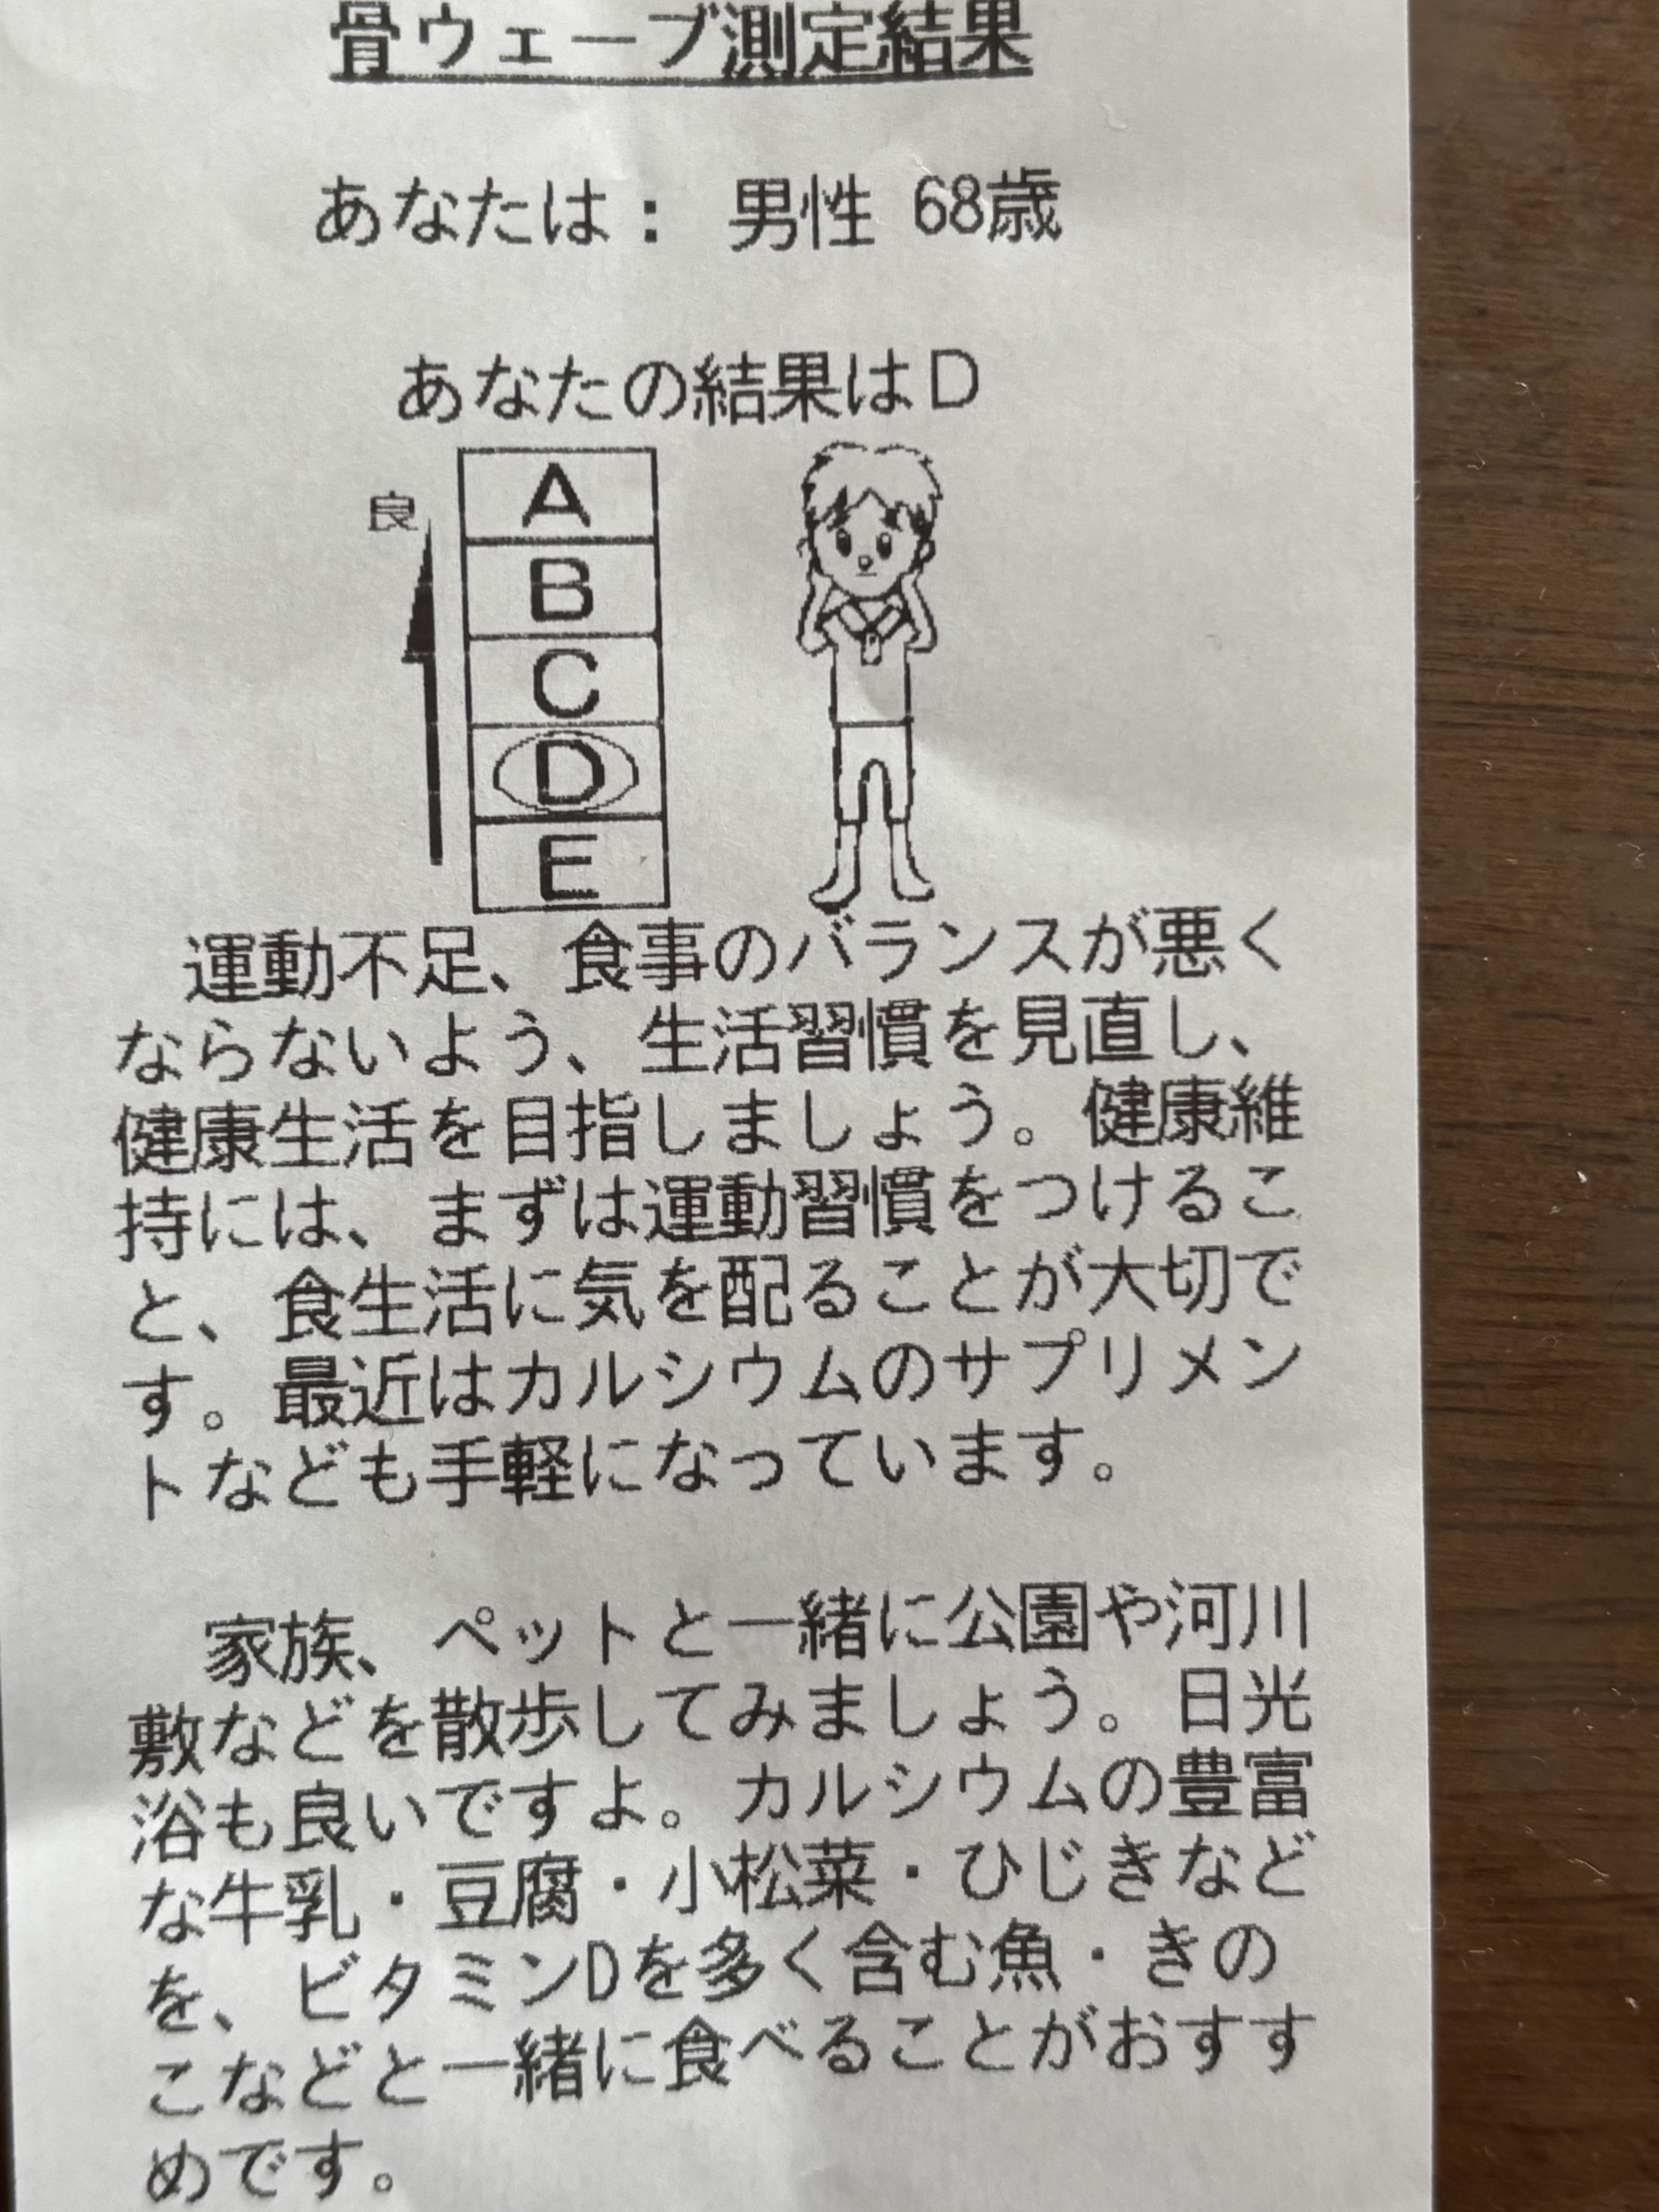 骨ウェーブ測定結果
あなたは： 男性 68歳
あなたの結果はD
良
A
B
C
D
E
運動不足、食事のバランスが悪く
ならないよう、生活習慣を見直し、
健康生活を目指しましょう。健康維
持には、まずは運動習慣をつけるこ
と、食生活に気を配ることが大切で
す。最近はカルシウムのサプリメン
トなども手軽になっています。
家族、ペットと一緒に公園や河川
敷などを散歩してみましょう。日光
浴も良いですよ。カルシウムの豊富
な牛乳・豆腐・小松菜・ひじきなど
を、ビタミンDを多く含む魚・きの
こなどと一緒に食べることがおすす
めです。